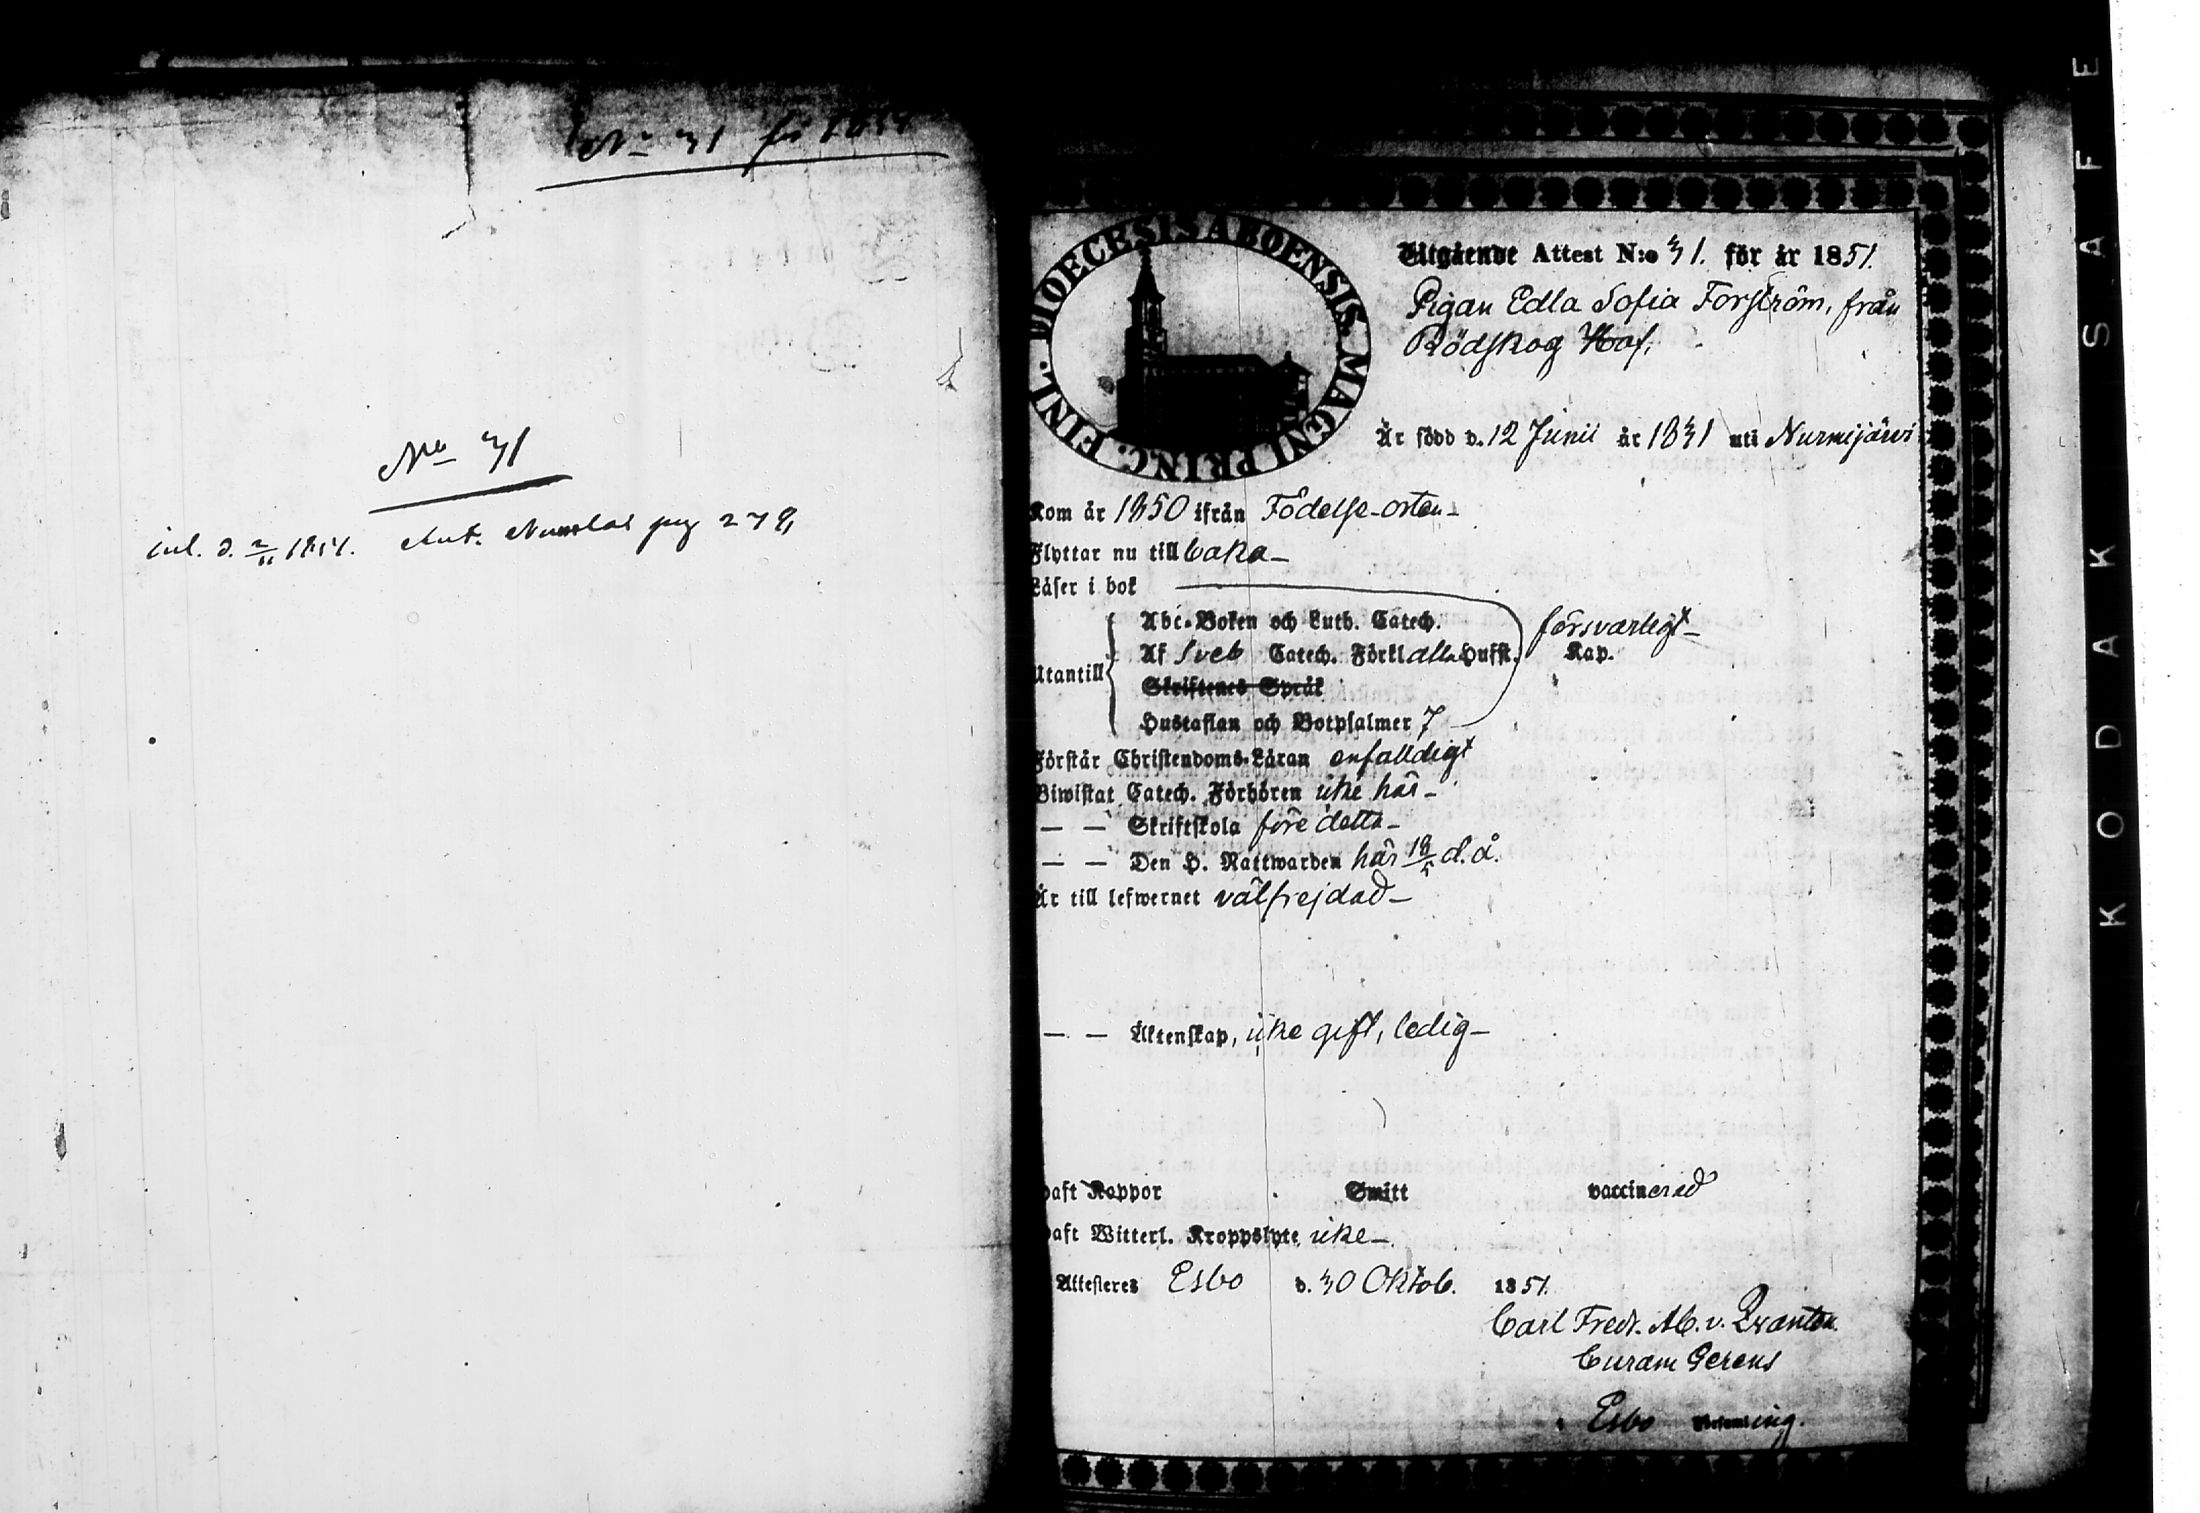 No 31 för 1851
No 31
inl. d. 2/11 1851. Ant. Numlax pag 279,
DIOECESIS ABOENSIS. MAGNI PRINC. FINL.
Utgående Attest N:o 31. för år 1851.
Pigan Edla Sofia Forström, från
Rödskog Hof.
Är född d. 12 Junii år 1831 uti Nurmijärvi
Kom år 1850 ifrån Födelse-orten
Flyttar nu till baka
Läser i bok
Utantill
Abc-Boken och Luth. Catech.
försvarligt
Af Sveb Catech. Förkl alla Hufst. Kap.
Skriftenes Språk
Hustaflan och Botpsalmer 7
Förstår Christendoms-Läran enfalldigt
Biwistat Catech. Förhören icke här
— — Skriftskola före detta
— — Den H. Nattwarden här 18/5 d.å.
Är till lefwernet välfrejdad
— — Äktenskap, icke gift, ledig
Haft Koppor Smitt vaccinerad
Haft Witterl. Kroppslyte icke
Attesteras Esbo d. 30 Oktob. 1851.
Carl Fredr. Ab. v. Qvanten.
Curam Gerens
i Esbo Församling.
KODAK SAFE